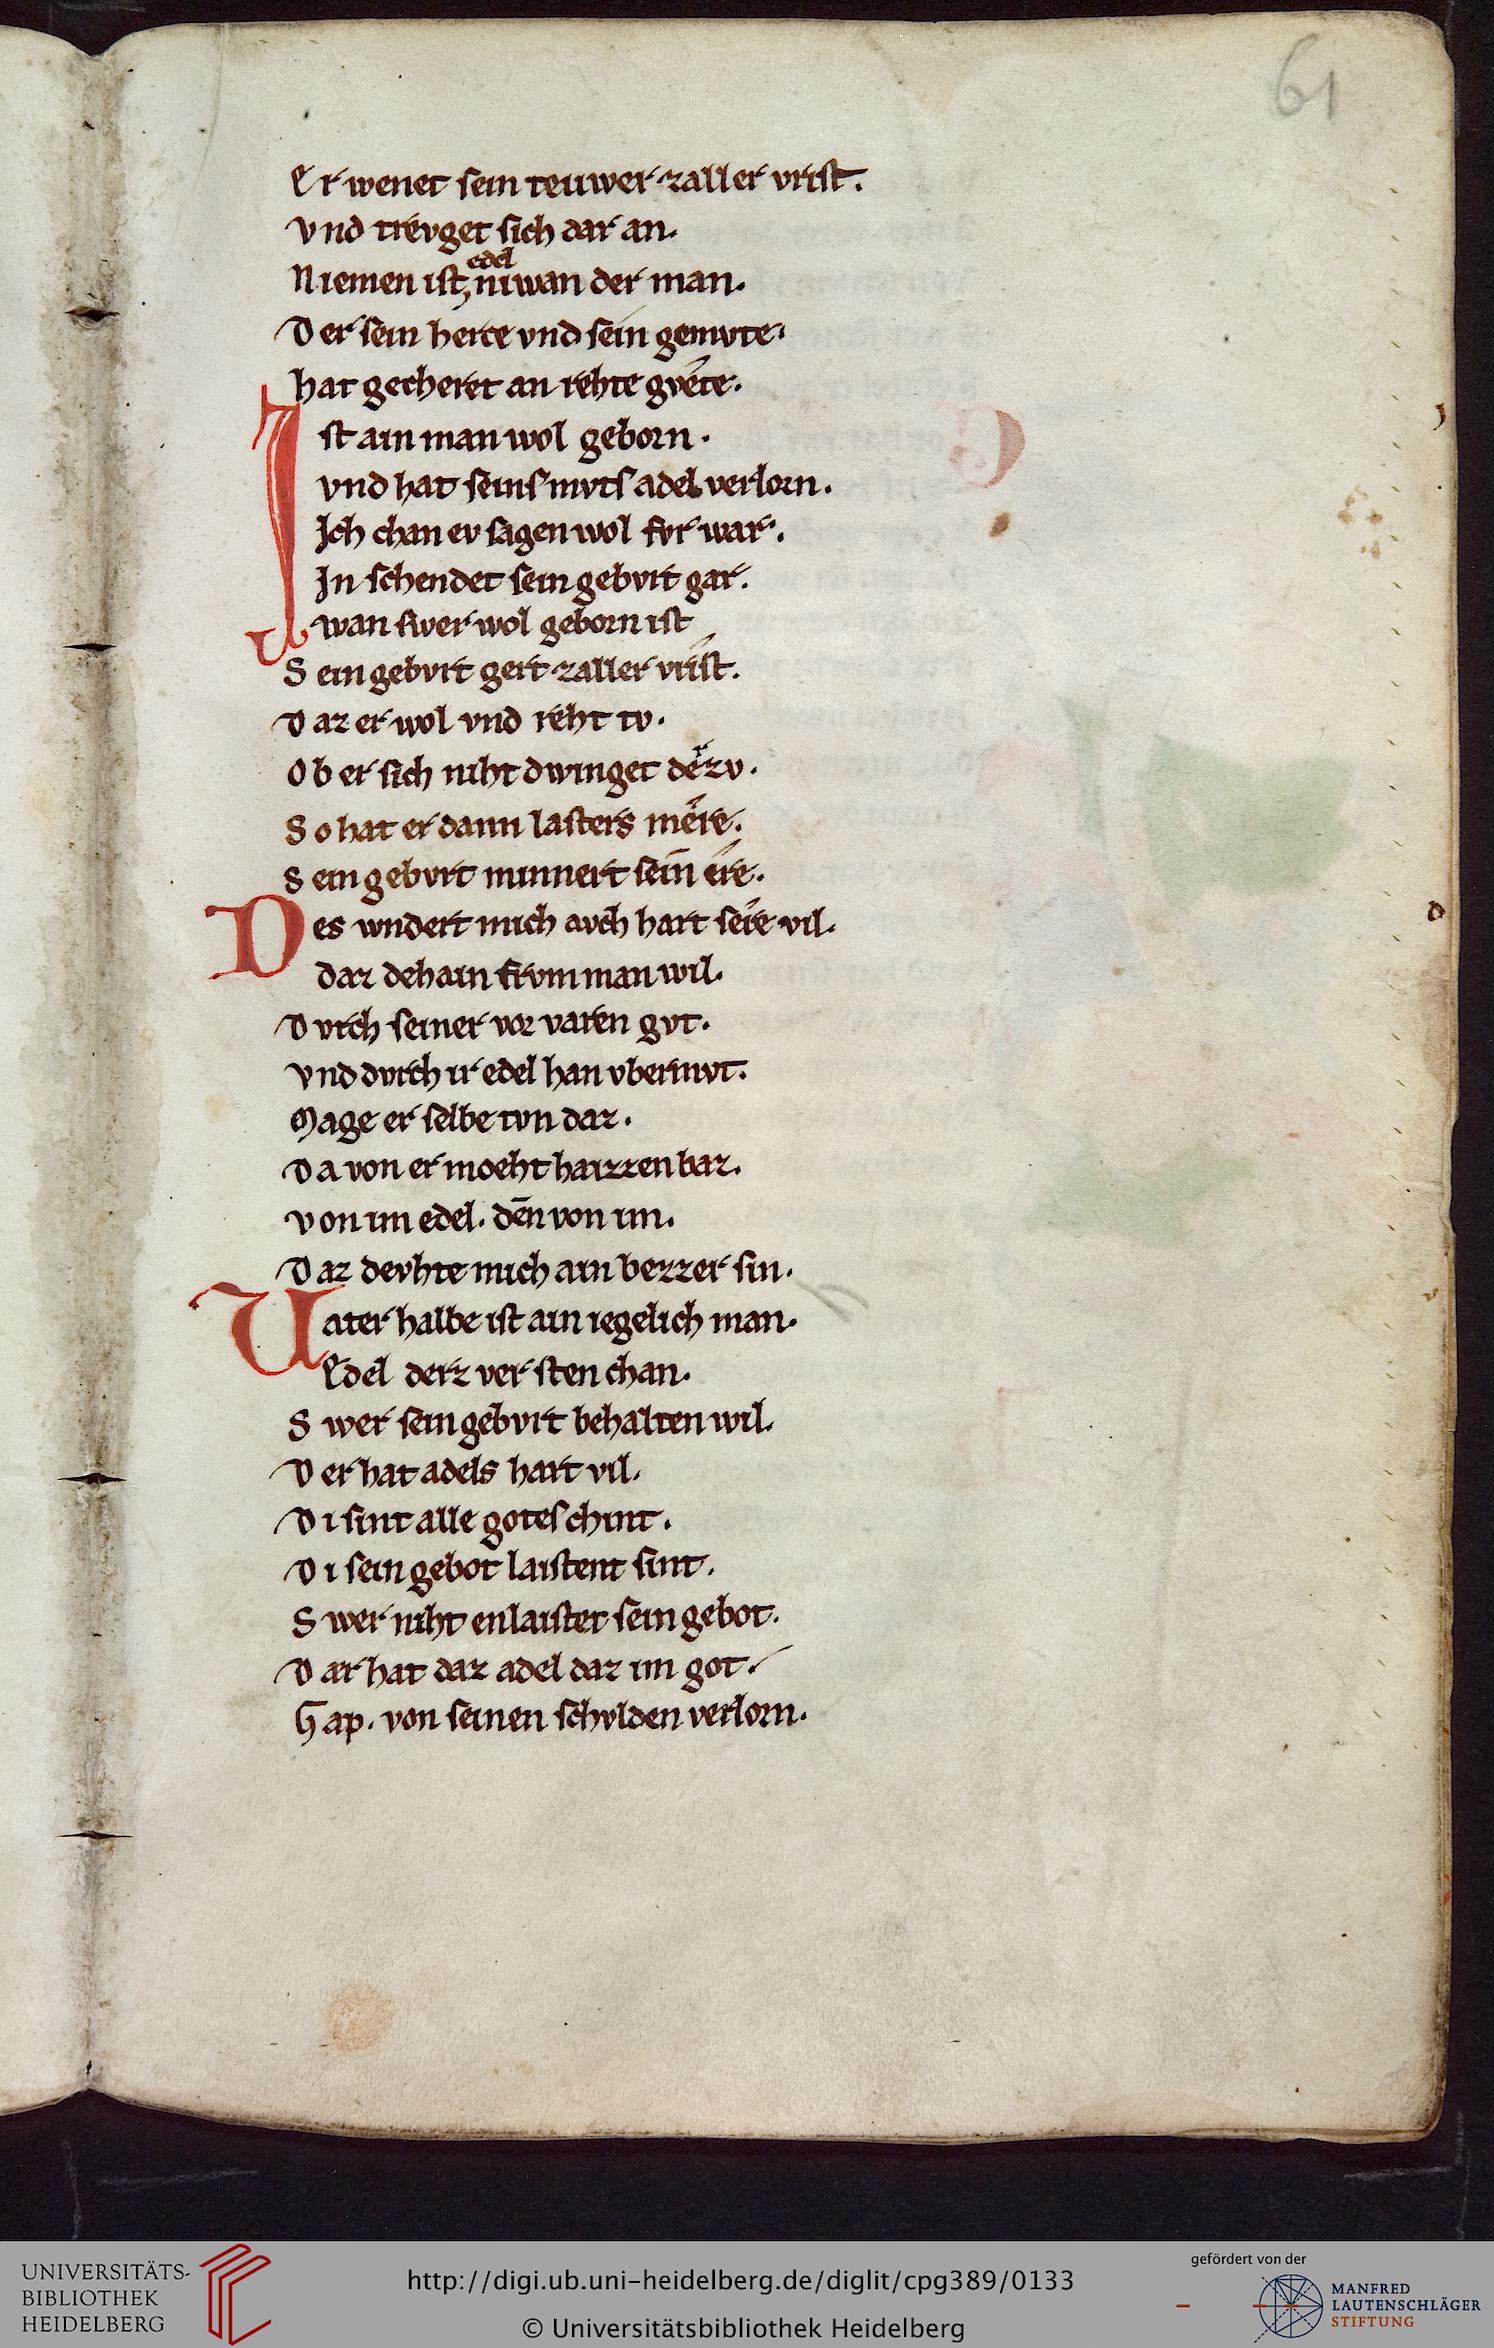 61
Er wenet sein teuwer zaller vrist.
Vnd trevget sich dar an.
edel
Niemen ist, niwan der man.
Der sein herce vnd sein gemvte.
hat gecheret an rehte gvͤte.
Ist ain man wol geborn.
vnd hat seins mvts adel verlorn.
Ich chan ev sagen wol fvr war.
In schendet sein gebvrt gar.
wan swer wol geborn ist
Sein gebvrt gert zaller vrist.
Daz er wol vnd reht tv.
Ob er sich niht dwinget derzv.
So hat er dann lasters mere.
Sein gebvrt minnert sein̄ ere.
Des wndert mich avch hart sere vil.
daz dehain frvm man wil.
Dvrch seiner vor varen gvt.
Vnd dvrch ir edel han vbermvt.
Mage er selbe tvn daz.
Da von er moeht haizzen baz.
Von im edel. den̄ von im.
Daz devhte mich ain bezzer sin.
Vater halbe ist ain iegelich man.
Edel derz ver sten chan.
Swer sein gebvrt behalten wil.
Der hat adels hart vil.
Di sint alle gotes chint.
Di sein gebot laistent sint.
Swer niht enlaistet sein gebot.
Dar hat daz adel daz im got.
Gap. von seinen schvlden verlorn.
UNIVERSITÄTS-
BIBLIOTHEK
HEIDELBERG
http://digi.ub.uni-heidelberg.de/diglit/cpg389/0133
© Universitätsbibliothek Heidelberg
gefördert von der
MANFRED
LAUTENSCHLÄGER
STIFTUNG